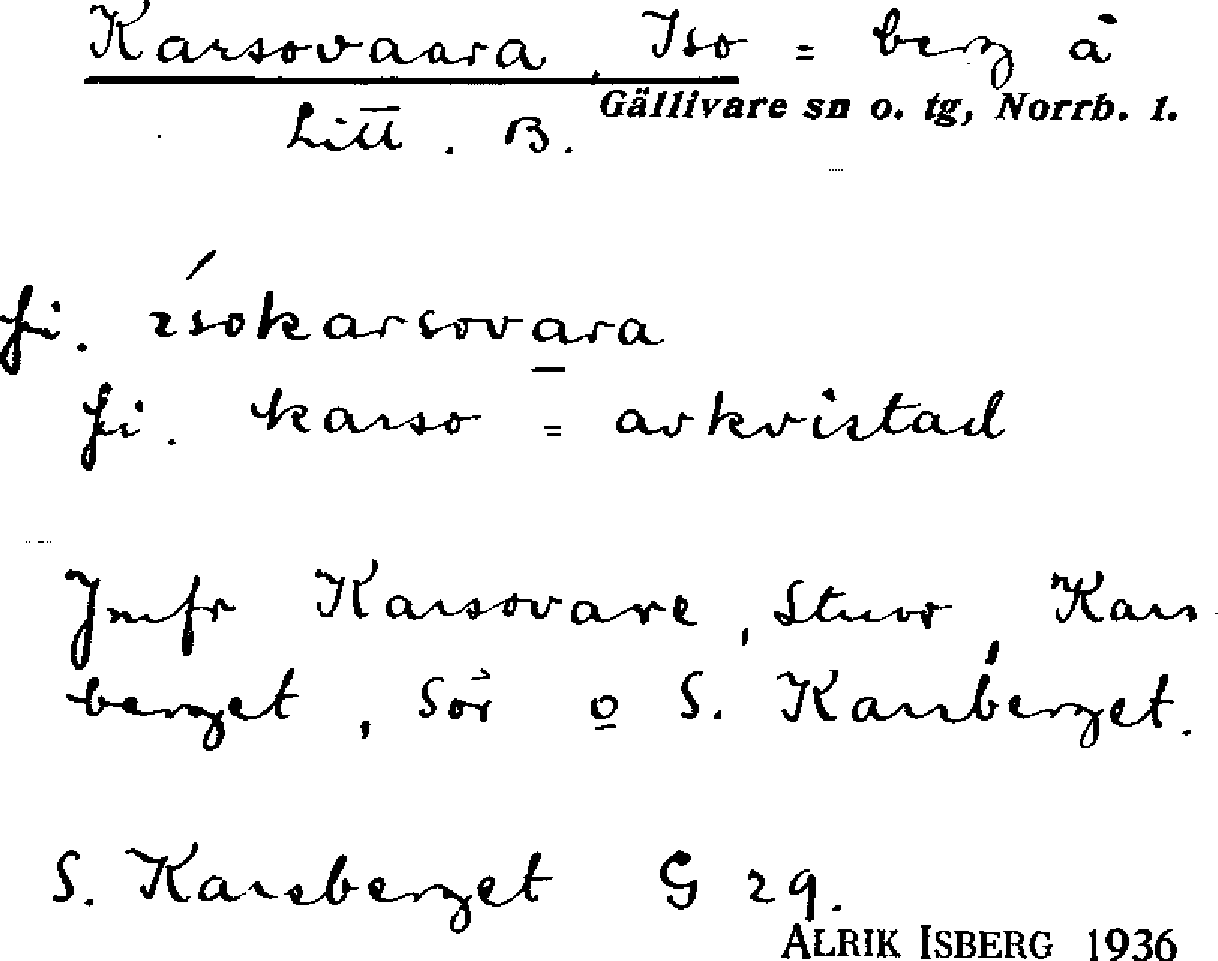 Karsovaara, Iso = berg å
Gällivare sn o. tg, Norrb. l.
Litt. B.
fi. ísokarsovara
fi. karso = avkvistad
Jmfr Karsovare, Stuor, Kars-
berget, Sör o S. Karsberget.
S. Karsberget G 29.
ALRIK ISBERG 1936